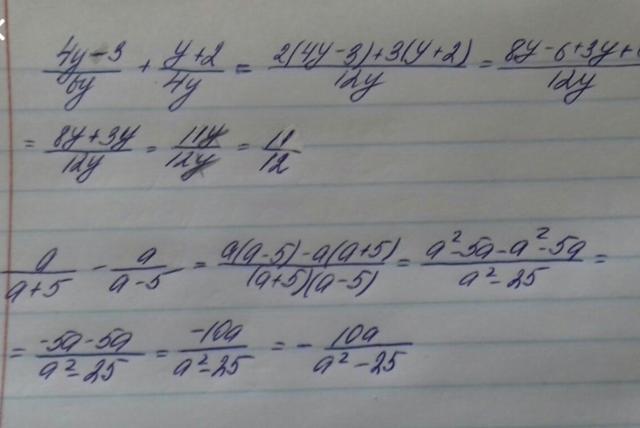 (4y-3)/(6y) + (y+2)/(4y) = (2(4y-3)+3(y+2))/(12y) = (8y-6+3y+6)/(12y)
= (8y+3y)/(12y) = (11y)/(12y) = 11/12
a/(a+5) - a/(a-5) = (a(a-5)-a(a+5))/((a+5)(a-5)) = (a²-5a-a²-5a)/(a²-25) =
= (-5a-5a)/(a²-25) = (-10a)/(a²-25) = - (10a)/(a²-25)